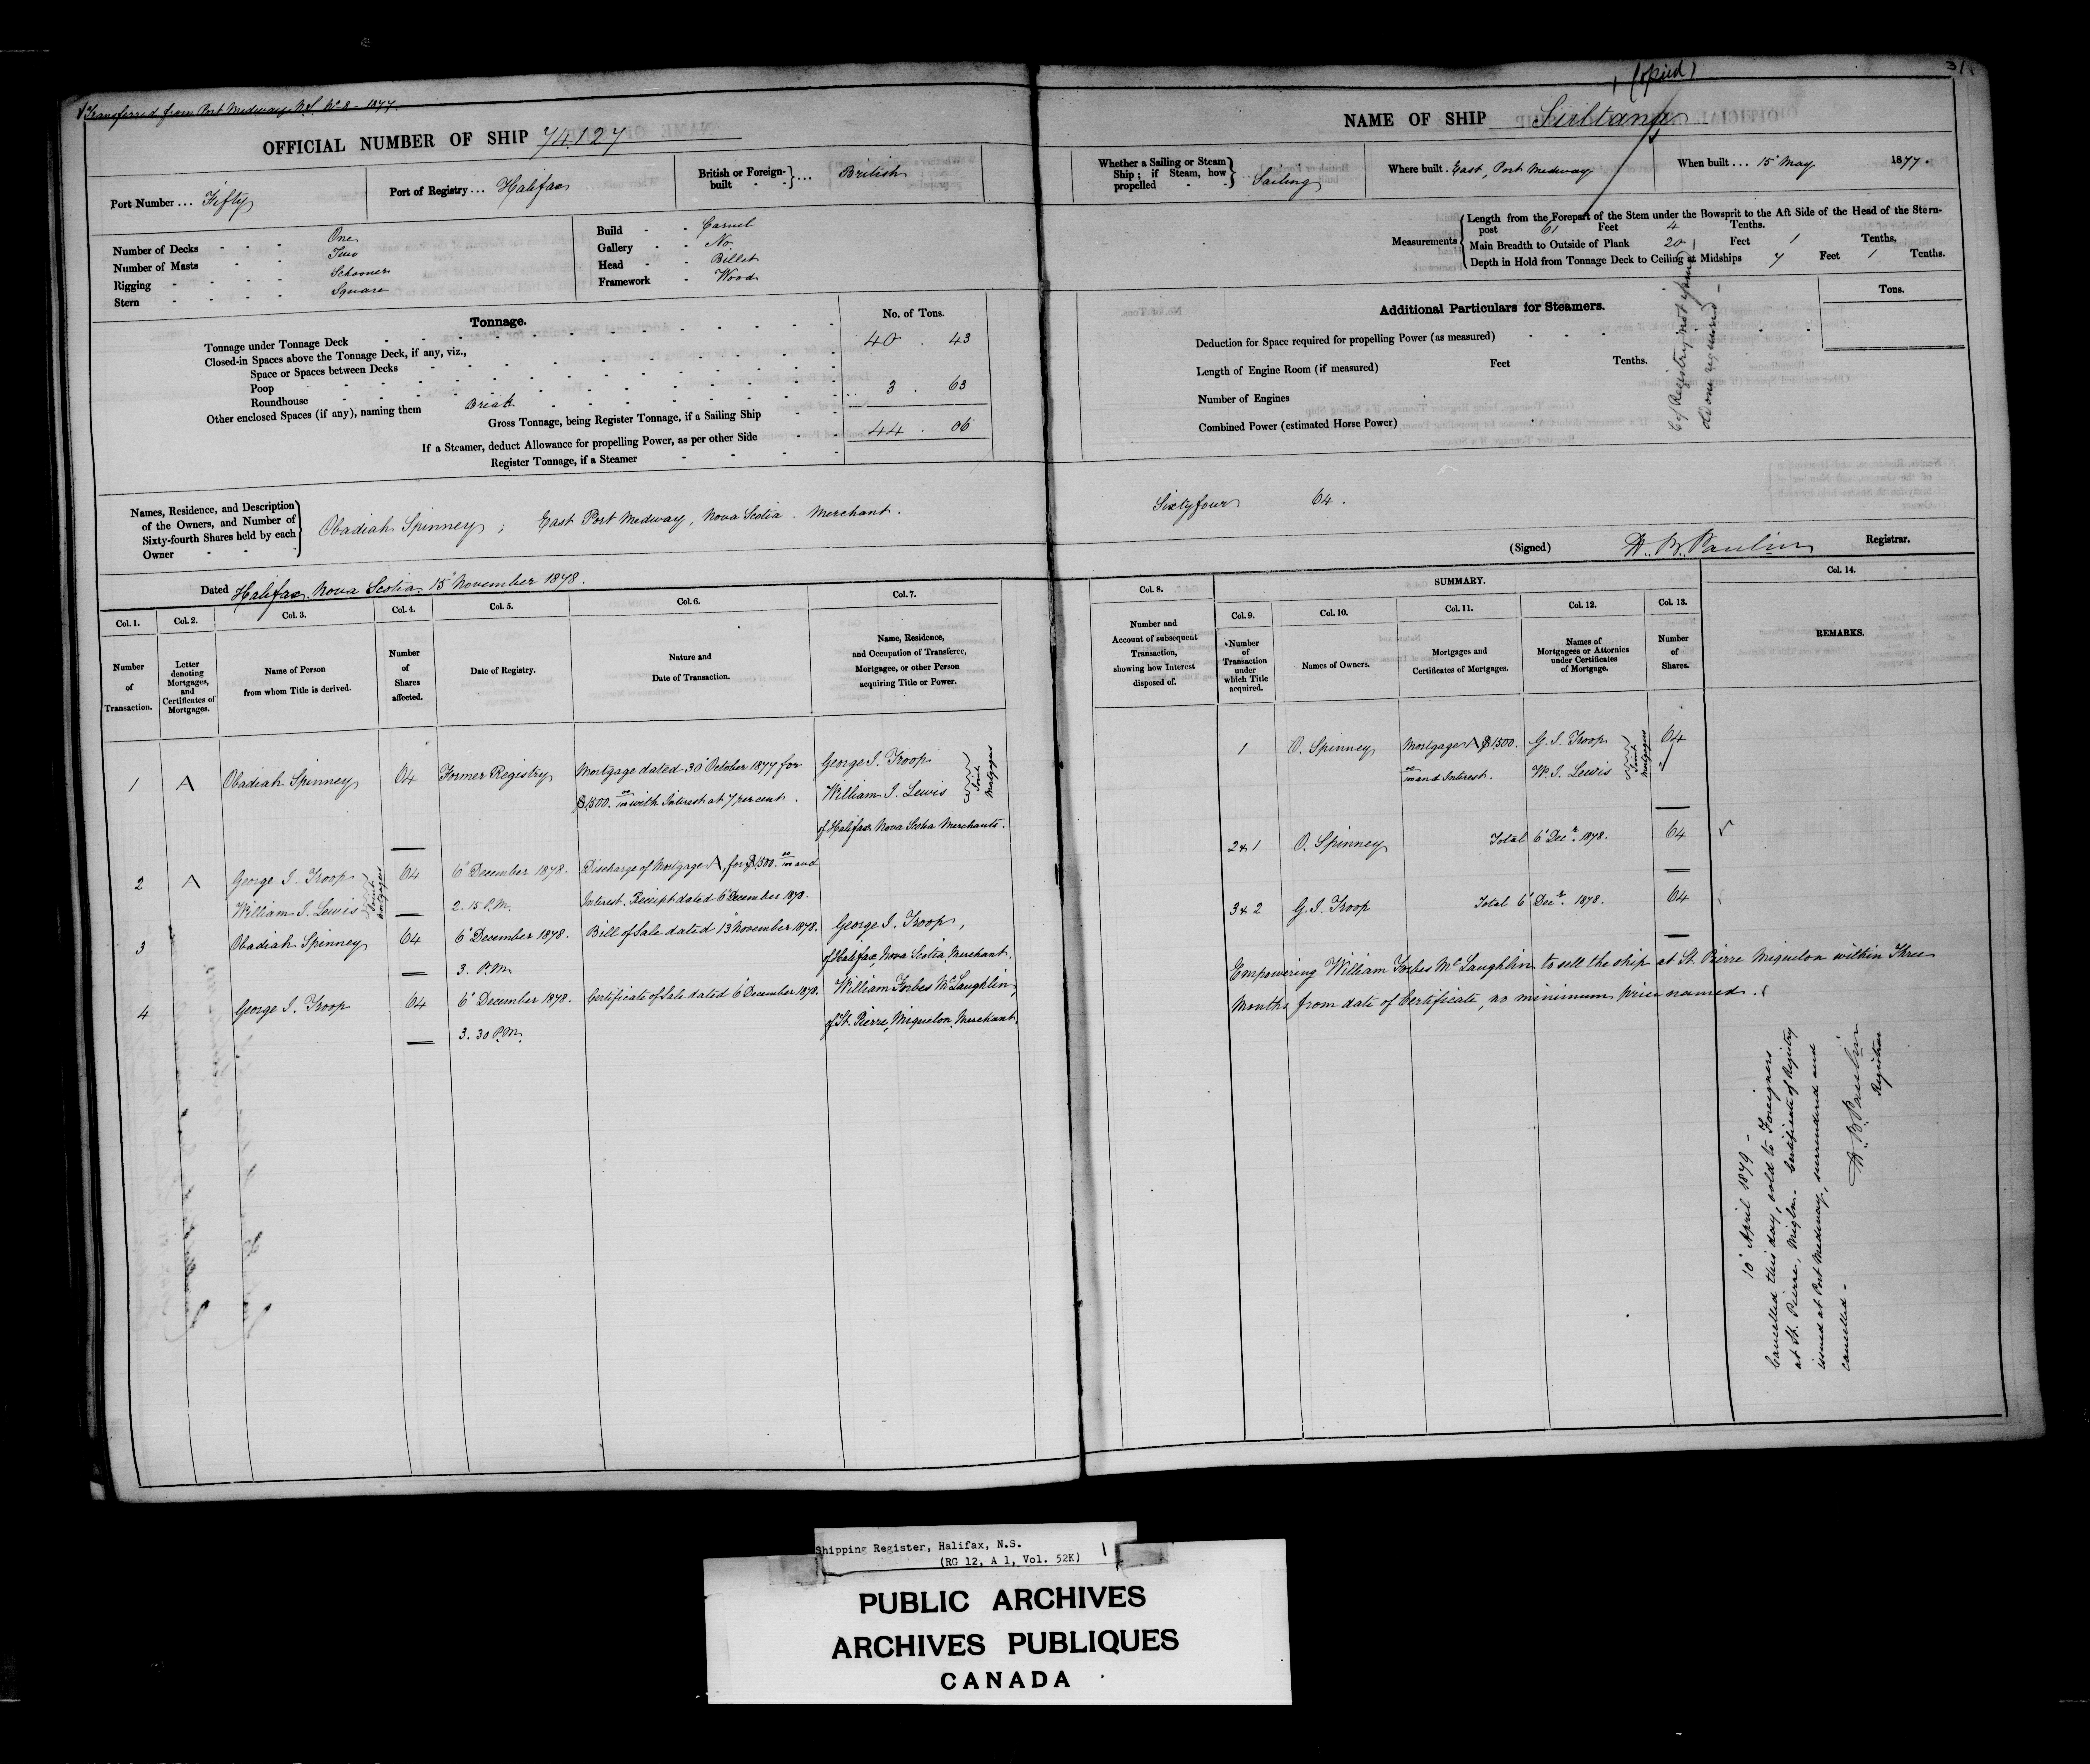 Transferred from Port Medway N.S. No 8 - 1877.
OFFICIAL NUMBER OF SHIP 74.127
Port Number ... Fifty
Port of Registry ... Halifax
British or Foreign-built ... British
Number of Decks - - - One
Number of Masts - - Two
Rigging - - - - Schooner
Stern - - - - Square
Build - - Carvel
Gallery - - No
Head - - Billet
Framework - Wood
Tonnage.
No. of Tons.
Tonnage under Tonnage Deck 40 . 43
Closed-in Spaces above the Tonnage Deck, if any, viz.,
Space or Spaces between Decks
Poop
Roundhouse 3 . 63
Other enclosed Spaces (if any), naming them Break
Gross Tonnage, being Register Tonnage, if a Sailing Ship 44 . 06
If a Steamer, deduct Allowance for propelling Power, as per other Side
Register Tonnage, if a Steamer
Names, Residence, and Description of the Owners, and Number of Sixty-fourth Shares held by each Owner
Obadiah Spinney ; East Port Medway, Nova Scotia . Merchant .
Dated Halifax. Nova Scotia. 15 November 1878.
Col. 1. Col. 2. Col. 3. Col. 4. Col. 5. Col. 6. Col. 7.
Number of Transaction.
Letter denoting Mortgages, and Certificates of Mortgages.
Name of Person from whom Title is derived.
Number of Shares affected.
Date of Registry.
Nature and Date of Transaction.
Name, Residence, and Occupation of Transferee, Mortgagee, or other Person acquiring Title or Power.
1 A Obadiah Spinney 64 Former Registry Mortgage dated 30 October 1877 for George I. Troop
$1500. 00/100 with Interest at 7 per cent . William I. Lewis Joint Mortgagees
of Halifax Nova Scotia Merchants.
2 A George I. Troop 64 6 December 1878. Discharge of Mortgage A, for $1500. 00/100 and
William I. Lewis Joint Mortgagees 2. 15 P.M. Interest. Receipt dated 6 December 1878.
3 Obadiah Spinney 64 6 December 1878. Bill of Sale dated 13 November 1878. George I. Troop,
3. P.M. of Halifax, Nova Scotia, Merchant.
4 George I. Troop 64 6 December 1878. Certificate of Sale dated 6 December 1878. William Forbes McLaughlin,
3. 30 P.M. of St. Pierre, Miquelon, Merchant.
31
(opied)
NAME OF SHIP Sultana
Whether a Sailing or Steam Ship; if Steam, how propelled - - Sailing
Where built . East, Port Medway
When built ... 15 May 1877.
Measurements
Length from the Forepart of the Stem under the Bowsprit to the Aft Side of the Head of the Stern-
post 61 Feet 4 Tenths.
Main Breadth to Outside of Plank 20 Feet 1 Tenths.
Depth in Hold from Tonnage Deck to Ceiling at Midships 7 Feet 1 Tenths.
Additional Particulars for Steamers.
Tons.
Deduction for Space required for propelling Power (as measured)
Length of Engine Room (if measured) Feet Tenths.
Number of Engines
Combined Power (estimated Horse Power)
C/ Registry not issued
Sixty four 64 .
(Signed) H. B. Paulin Registrar.
Col. 8. SUMMARY. Col. 14.
Col. 9. Col. 10. Col. 11. Col. 12. Col. 13.
Number and Account of subsequent Transaction, showing how Interest disposed of.
Number of Transaction under which Title acquired.
Names of Owners.
Mortgages and Certificates of Mortgages.
Names of Mortgagees or Attornies under Certificates of Mortgage.
Number of Shares.
REMARKS.
1 O. Spinney Mortgage A $1500. G. I. Troop 64
00/100 and Interest. W. I. Lewis Joint Mortgagees
2 & 1 O. Spinney Total 6 Decr. 1878. 64
3 & 2 G. I. Troop Total 6 Decr. 1878. 64
Empowering William Forbes McLaughlin to sell the ship at St. Pierre Miquelon within Three
Months from date of Certificate, no minimum price named.
10 April 1879 -
Cancelled this day, sold to Foreigners
at St. Pierre, Miqln - Certificate of Registry
issued at Port Medway, surrendered and
cancelled -
H. B. Paulin
Registrar
Shipping Register, Halifax, N.S.
(RG 12, A 1, Vol. 52K)
PUBLIC ARCHIVES
ARCHIVES PUBLIQUES
CANADA